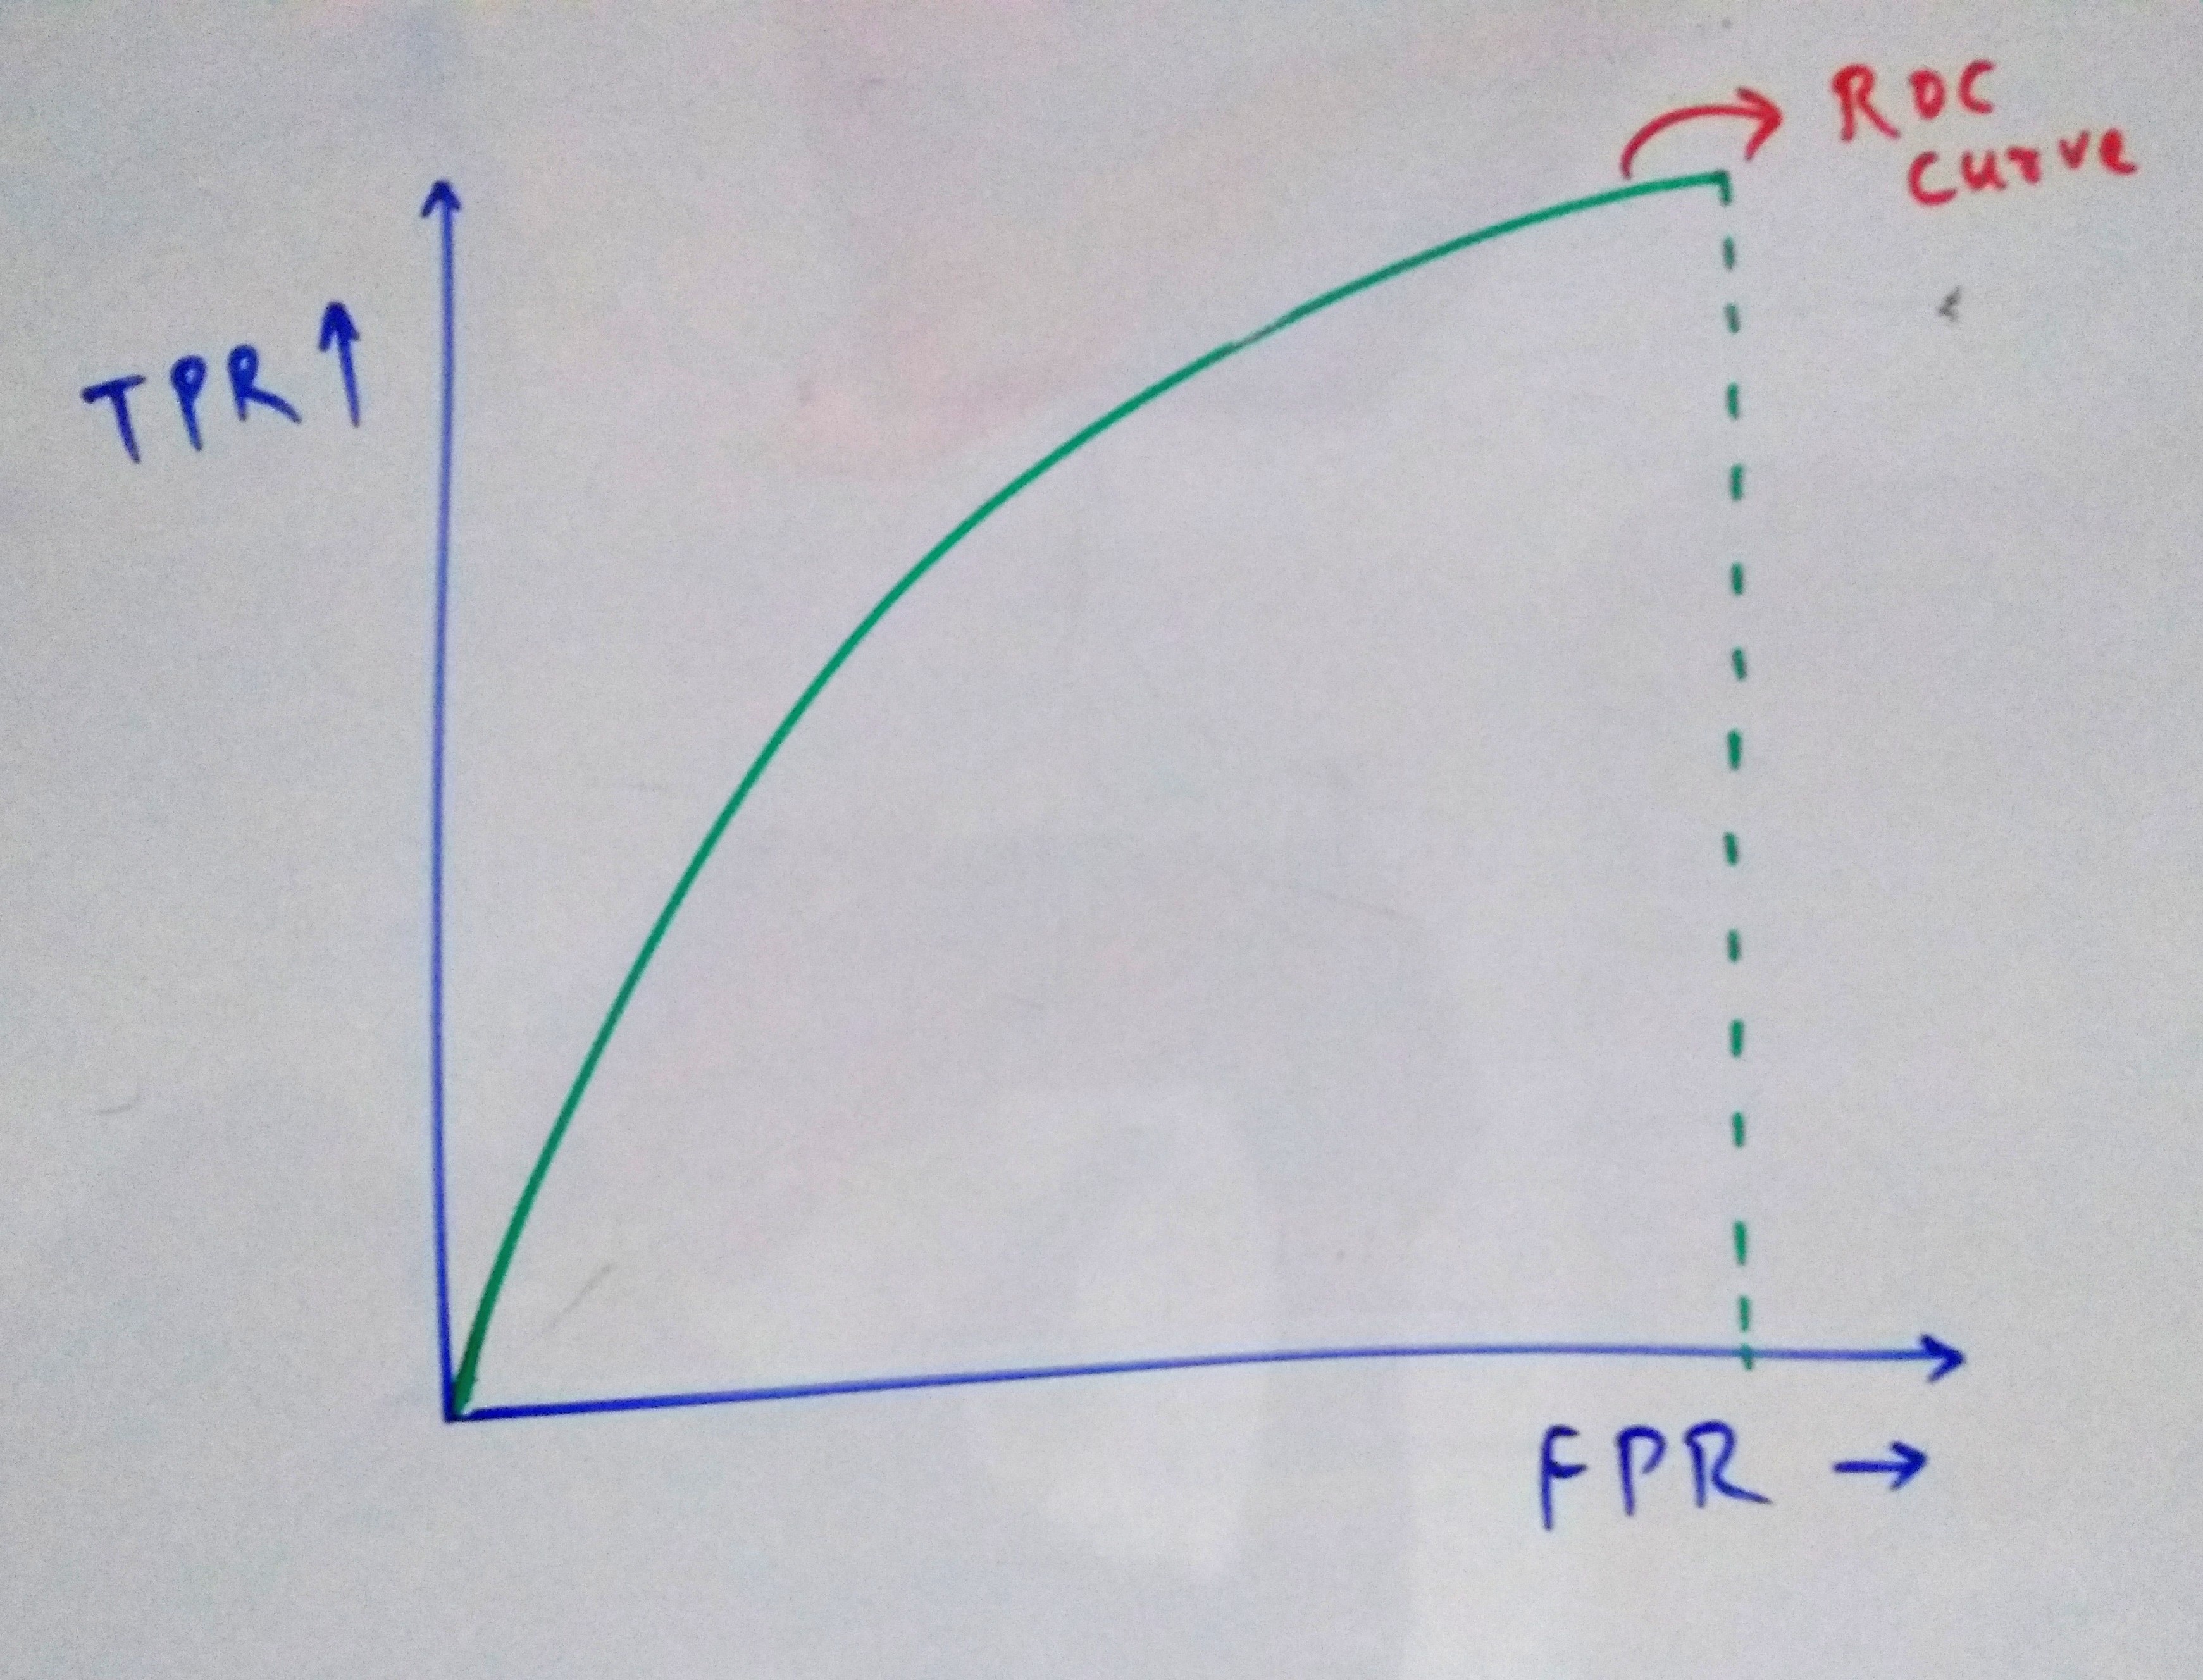 ROC
curve
TPR ↑
FPR →